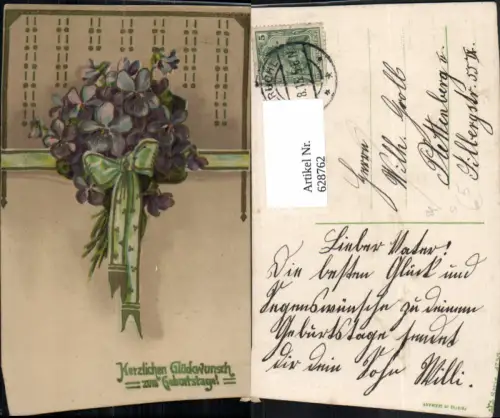 Herzlichen Glückwunsch
zum Geburtstage!
5
Artikel Nr.
628762
Herrn
Wilh. Groll
Plettenberg
Lieber Vater!
Die besten Glück und
Segenswünsche zu deinem
Geburtstage sendet
dir dein Sohn Willi.